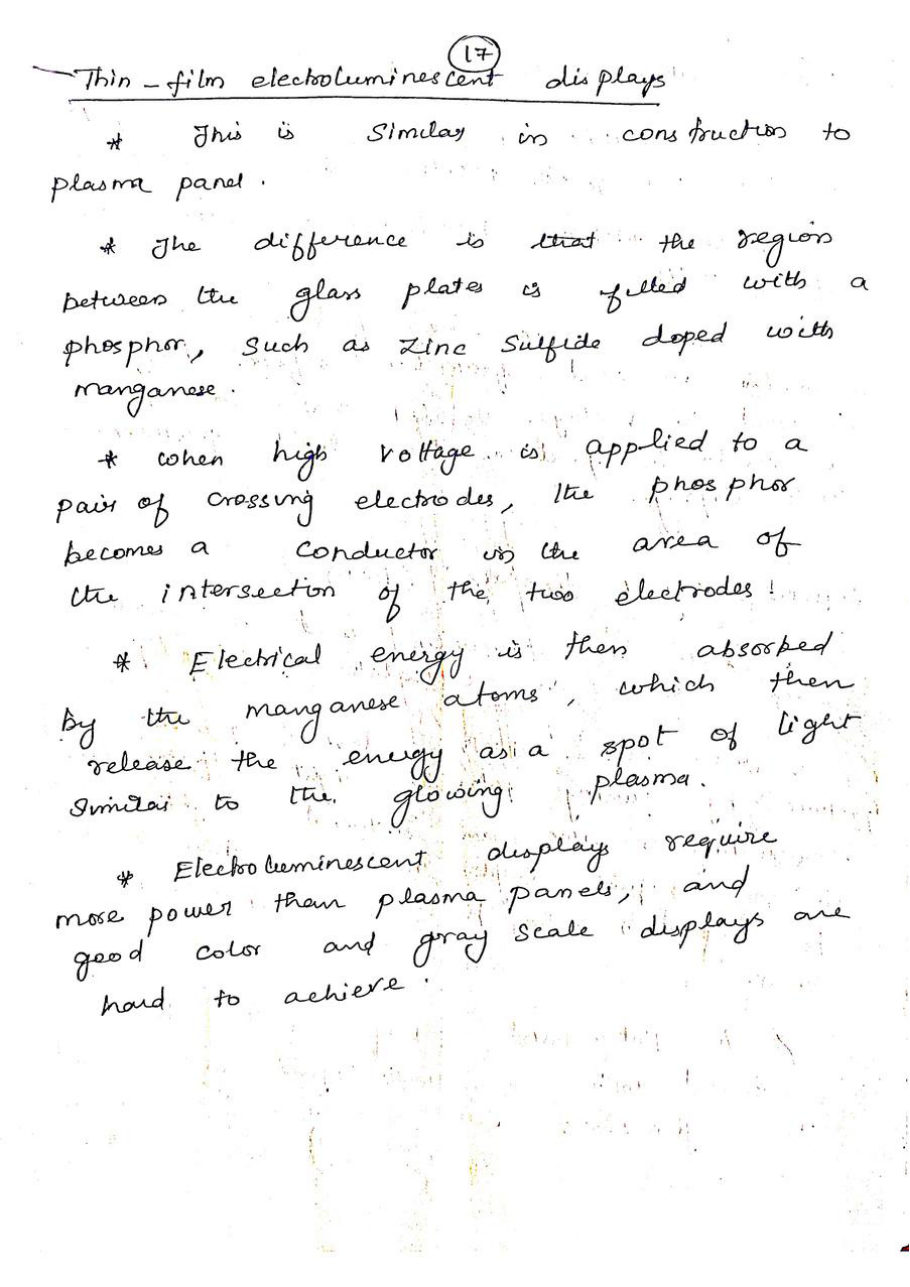 17
Thin-film electroluminescent displays
* This is Similar in construction to
plasma panel.
* The difference is that the region
between the glass plates is filled with a
phosphor, such as zinc sulfide doped with
manganese.
* when high voltage is applied to a
pair of crossing electrodes, the phosphor
becomes a conductor in the area of
the intersection of the two electrodes.
* Electrical energy is then absorbed
by the manganese atoms, which then
release the energy as a spot of light
similar to the glowing plasma.
* Electroluminescent displays require
more power than plasma panels, and
good color and gray scale displays are
hard to achieve.